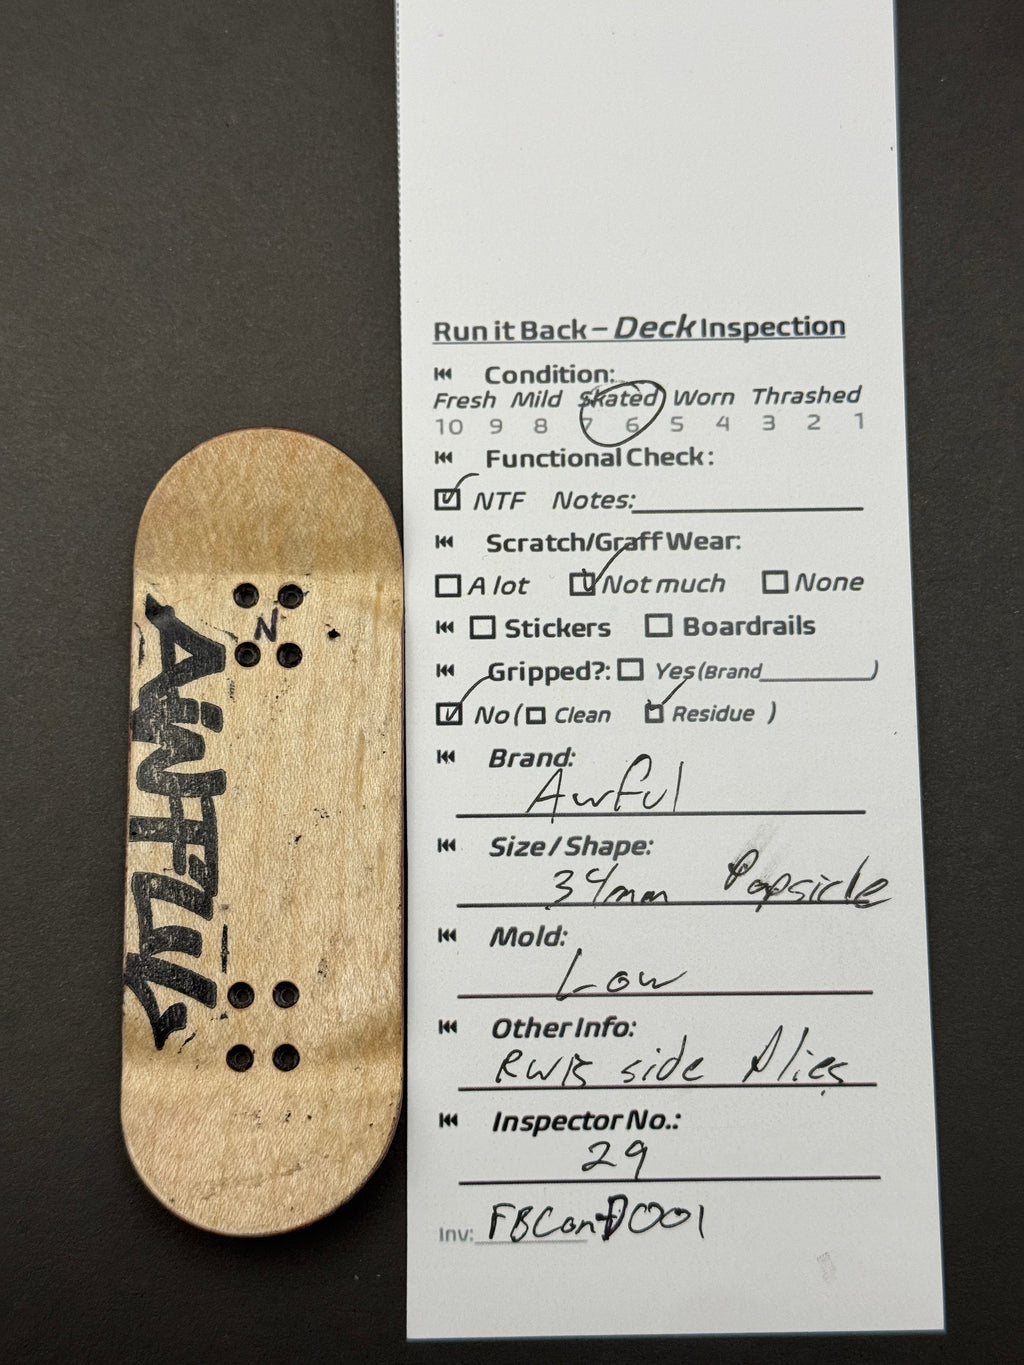 AWFUL
N
Run it Back – Deck Inspection
Condition:
Fresh Mild Skated Worn Thrashed
10 9 8 7 6 5 4 3 2 1
Functional Check:
NTF Notes:
Scratch/Graff Wear:
A lot Not much None
Stickers Boardrails
Gripped?: Yes (Brand )
No ( Clean Residue )
Brand:
Awful
Size / Shape:
34mm Popsicle
Mold:
Low
Other Info:
RWB side Plies
Inspector No.:
29
Inv: FBConD001